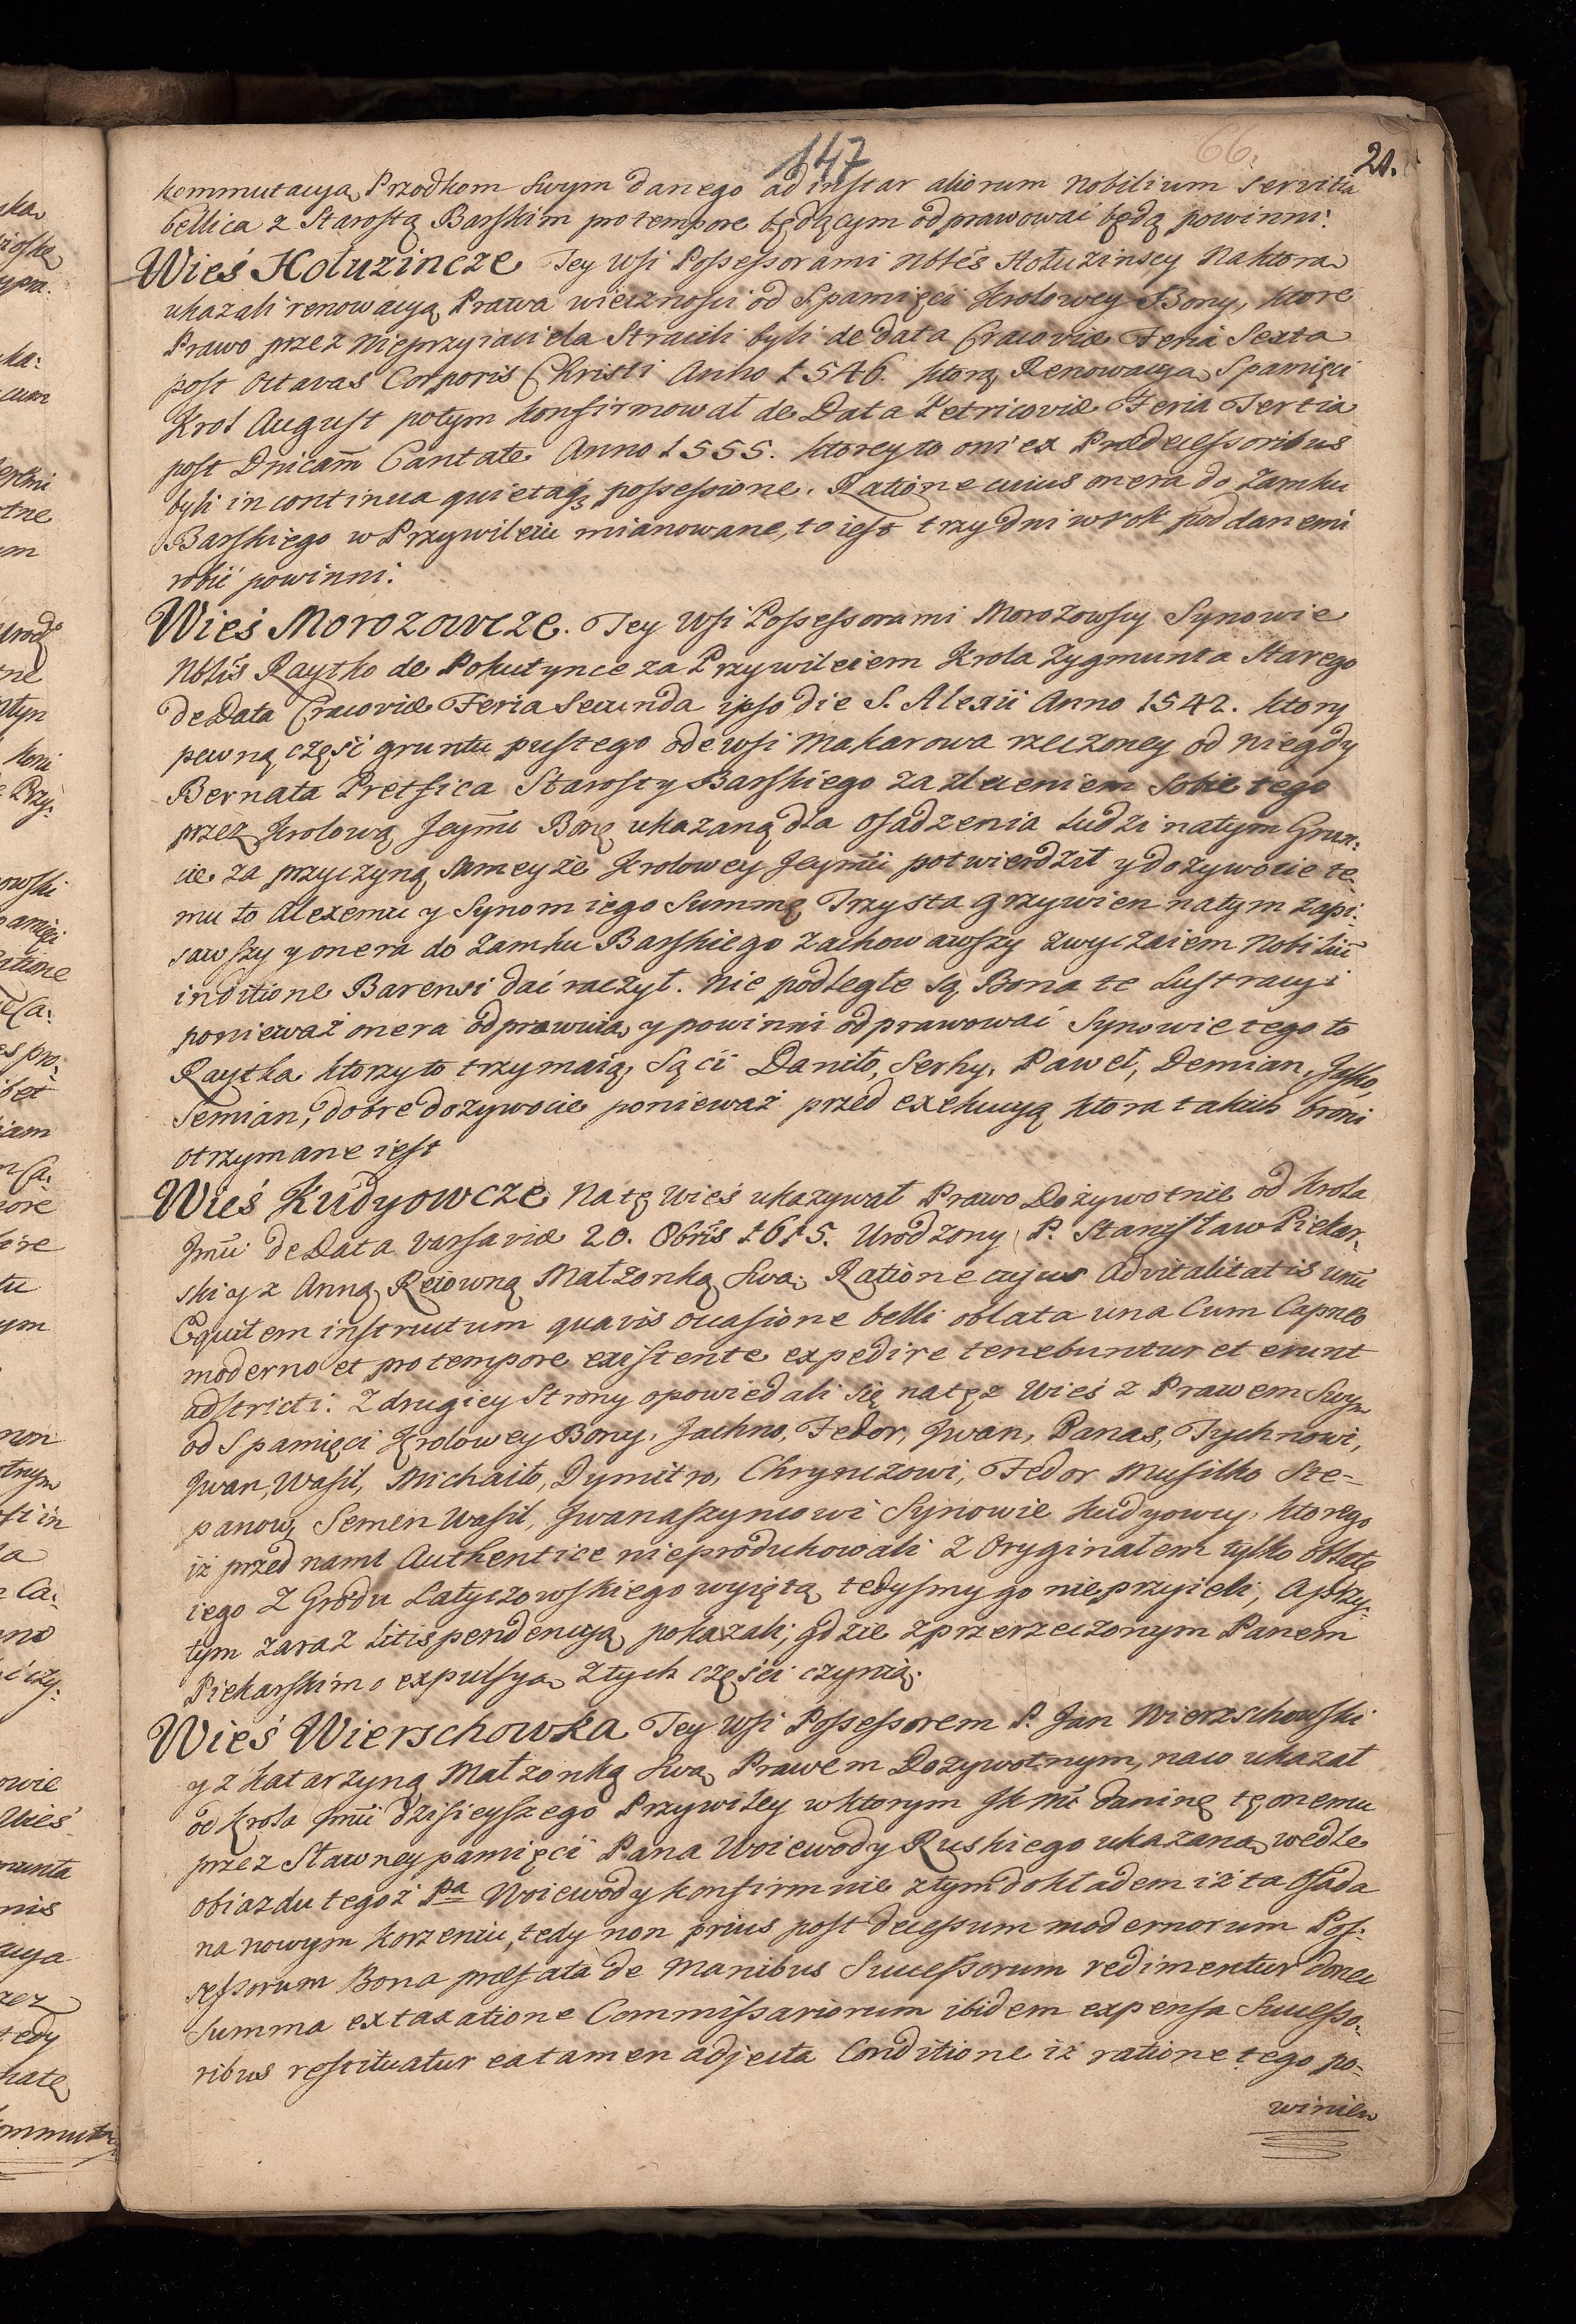 147
66.
20.
kommutacyą Przodkom swym danego ad instar aliorum Nobilium servitia
bellica z Starostą Barskim pro tempore będącym odprawować będą powinni:
Wieś Hołuzincze Tey Wsi Possessorami Nbłes Hołuzinscy Naktora
ukazali renowacyą Prawa wiecznosci od S. pamięci Krolowey Bony, ktore
Prawo przez nieprzyiaciela Stracili byli de data Cracoviæ Feria Sexta
post Octavas Corporis Christi Anno 1546. ktorą Renowacyą S pamięci
Krol August potym konfirmował de Data Petricoviæ Feria Tertia
post Dnicam̃ Cantate Anno 1555. ktorey to oni ex Prædecessoribus
byli in continua quietaq; possessione. Ratione cuius onera do Zamku
Barskiego w Przywileiu mianowane, to iest trzy dni w rok poddanemi
robić powinni.
Wieś Morozowcze. Tey Wsi Possessorami Morozowscy Synowie
Nbłis Raytko de Pokutynce za Przywileiem Krola Zygmunta Starego
de Data Cracoviæ Feria Secunda ipso die S. Alexii Anno 1542. ktory
pewną częsć gruntu pustego ode wsi Makarowa rzeczoney od niegdy
Bernata Pretfica Starosty Barskiego za zleceniem sobie tego
przez Krolową Jeym̃ Bonę ukazaną dla osadzenia ludzi natym Grun:
cie za przyczyną samey że Krolowey Jeym̃ci potwierdził y dożywocie te:
mu to Alexemu y Synom iego Summę Trzysta grzywien natym zapi:
sawszy y onera do Zamku Barskiego zachowawszy zwyczaiem Nobiliũ
in ditione Barensi dać raczył. Nie podległe są Bona te Lustracyi
ponieważ onera odprawuią y powinni odprawować Synowie tego to
Raytka ktorzy to trzymaią, Są ci Daniło, Serhy, Paweł, Demian, Jsko,
Semian, dobre dożywocie ponieważ przed exekucyą ktora takich broni
otrzymane iest
Wieś Kudyowcze Natę Wieś ukazywał Prawo Dożywotnie od Krola
Jm̃ci de Data Varsaviæ 20. Obris 1615. Urodzony P. Stanisław Piekar:
ski y z Anną Reiowną Małżonką swą: Ratione cujus advitalitatis unũ
Equitem instructum quavis occasione belli oblata una Cum Capneo
moderno et pro tempore existente expedire tenebuntur et erunt
adstricti. Z drugiey Strony opowiedali się natęż Wieś z Prawem Swym
od S pamięci Krolowey Bony. Jachno, Fedor, Jwan, Panas, Tychnowi,
Jwan, Wasil, Michaiło, Dymitro, Chrynczowi, Fedor Musilko Ste=
panow, Semen Wasil, Jwanaszyncowi Synowie Kudyowcy, ktorego
iż przed nami Authentice nieprodukowali z Oryginałem tylko oblatę
iego z Grodu Latyczowskiego wyiętą tedysmy go nieprzyieli, A przy:
tym zaraz litispendencyą pokazali, gdzie zprzerzeczonym Panem
Piekarskim o expulsyą z tych części czynią.
Wieś Wierschowka Tey Wsi Possessorem P. Jan Wierzschowski
y z Katarzyną Małżonką swą Prawem Dożywotnym, naco ukazał
od Krola Jm̃ci dzisieyszego Przywiley w ktorym Jk M̃ć daninę tę onemu
przez Sławney pamięci Pana Woiewody Ruskiego ukazaną wedle
obiazdu tegoż Pa Woiewody konfirmuie z tym dokładem iż ta Osada
na nowym korzeniu, tedy non prius post decessum modernorum Pos:
sessorum Bona præfata de Manibus Successorum redimentur donec
Summa extaxatione Commissariorum ibidem expensa Successo:
ribus restituatur ea tamen adjecta Conditione iż ratione tego po:
winien